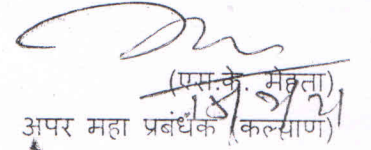 (एस.के. मेहता)
अपर महा प्रबंधक (कल्याण)